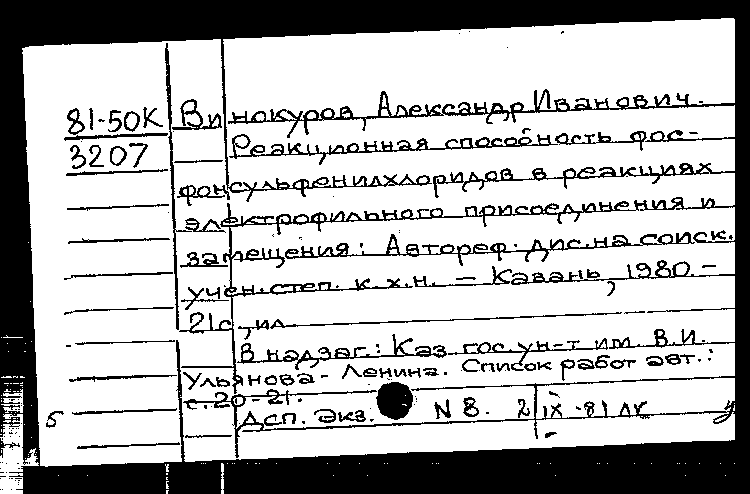 81-50К Винокуров, Александр Иванович.
3207 Реакционная способность фос-
фонсульфенилхлоридов в реакциях
электрофильного присоединения и
замещения: Автореф. дис. на соиск.
учен. степ. к. х. н. — Казань, 1980. —
21 с., ил.
В надзаг.: Каз. гос. ун-т им. В. И.
Ульянова-Ленина. Список работ авт.:
с. 20-21.
5 Дсп. Экз. N 8. 2 IX -81 ЛК у